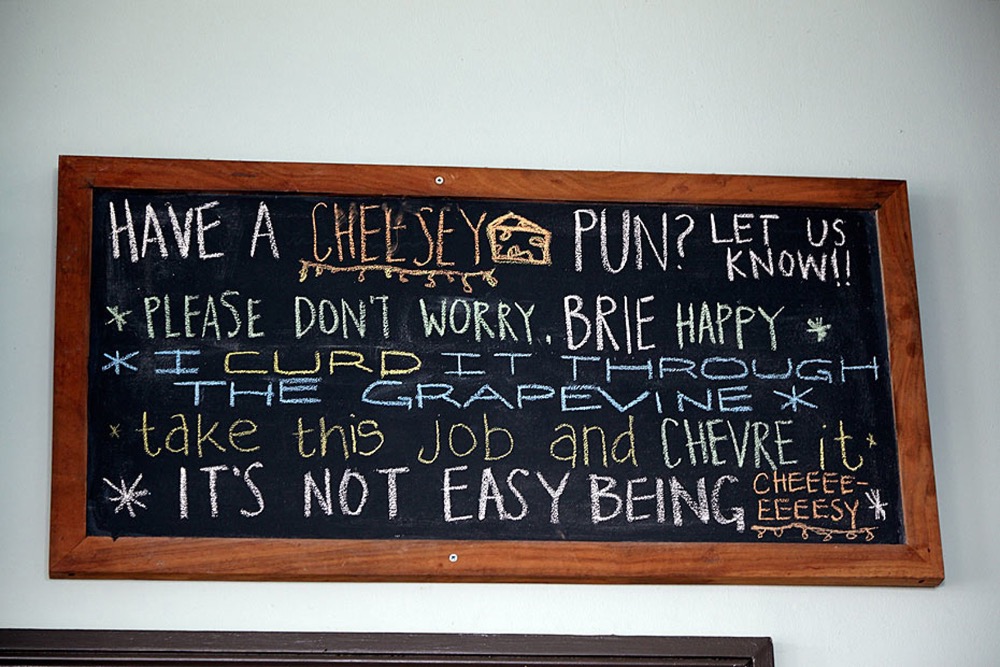 HAVE A CHEESEY PUN? LET US KNOW!!
* PLEASE DON'T WORRY, BRIE HAPPY *
* I CURD IT THROUGH
THE GRAPEVINE *
* take this job and CHEVRE it *
* IT'S NOT EASY BEING CHEEEE-
EEEEESY *